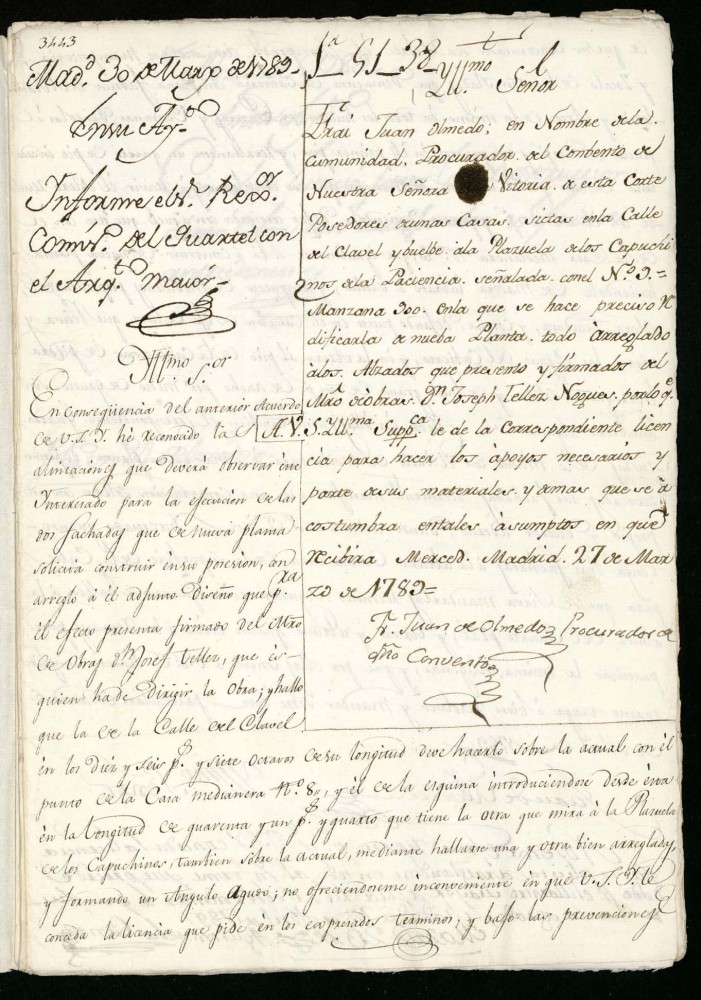 3443
Mad.d 30 de Marzo de 1789
En su Ay.to
Informe el s.r Rexor.
Comis.o del Quartel con
el Arq.to maior
1a 51 38
Yll.mo Señor
Frai Juan Olmedo; en Nombre de la
Comunidad. Procurador. del Conbento de
Nuestra Señora Vitoria. de esta Corte
Posedores de unas Casas. sictas en la Calle
del Clavel y buelbe. ala Plazuela de los Capuchi
nos de la Paciencia. señalada. con el N.o 9.=
Manzana 300. en la que se hace preciso Re
dificarla de nueba Planta. todo àrreglado
alos. Alzados que presento y formados del
Mro. de òbras. Dn. Joseph Tellez Nogues. por lo q.e
A. V. S. Yll.ma Supp.ca le de la Correspondiente licen
cia para hacer los àpoyos necesarios y
porte de sus materiales. y demas que se à
costumbra en tales àsumptos en que
Recibira Merced. Madrid. 27 de Mar
zo de 1789=
Fr. Juan de Olmedo Procurador de
dho Convento
Yll.mo S.or
En conseqüencia del anterior Acuerdo
de V.S.I. hè reconocido la
alineacion q.e que deverá observar ese
Interesado para la execucion de las
dos fachadas que de nueva planta
solicita construir en su posesion, con
arreglo à èl adjunto Diseño que p.a
èl efecto presenta firmado del Mro
de Obras dn. Josef Tellez, que es
quien ha de dirigir la Obra; y hallo
que la de la Calle del Clavel
èn los diez y seis p.s y siete octavos de su longitud deve hacerlo sobre la actual con èl
punto de la Casa medianera N.o 8,, y èl de la esquina introduciendose desde èsta
èn la longitud de quarenta y un p.s y quarto que tiene la otra que mira à la Plazuela
de los Capuchinos, tambien sòbre la actual, mediante hallarse una y otra bien arregladas,
y formando un Angulo Agudo; no ofreciendoseme inconveniente èn que V.S.I. le
conceda la licencia que pide èn los expresados terminos, y bajo las prevenciones